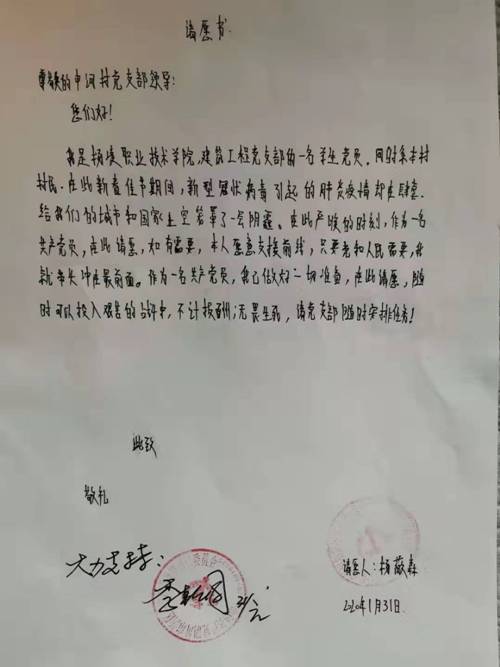 请愿书
尊敬的中河村党支部领导：
您们好！
我是杨凌职业技术学院，建筑工程党支部的一名学生党员。同时系本村
村民。在此新春佳节期间，新型冠状病毒引起的肺炎疫情却在肆虐。
给我们的城市和国家上空笼罩了一层阴霾。在此严峻的时刻，作为一名
共产党员，在此请愿，如有需要，本人愿意支援前线，只要党和人民需要，我
就带头冲在最前面。作为一名共产党员，我已做好一切准备，在此请愿，随
时可以投入艰苦的战斗中，不计报酬；无畏生死，请党支部随时安排任务！
此致
敬礼
大力支持：
请愿人：杨敬森
2020年1月31日.